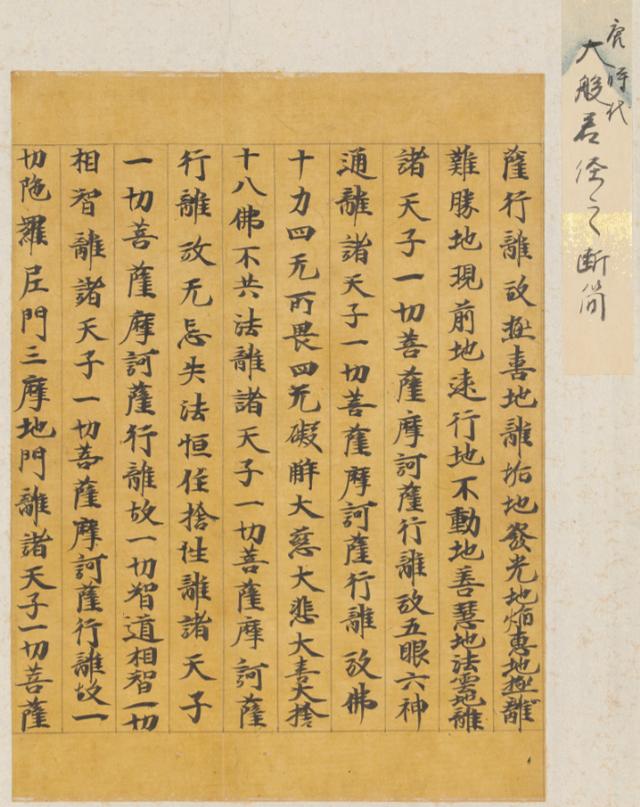 唐時代
大般若経之断簡
薩行離故極喜地離垢地發光地焔慧地極離
難勝地現前地遠行地不動地善慧地法雲地離
諸天子一切菩薩摩訶薩行離故五眼六神
通離諸天子一切菩薩摩訶薩行離故佛
十力四无所畏四无礙解大慈大悲大喜大捨
十八佛不共法離諸天子一切菩薩摩訶薩
行離故无忘失法恒住捨性離諸天子
一切菩薩摩訶薩行離故一切智道相智一切
相智離諸天子一切菩薩摩訶薩行離故一
切陁羅尼門三摩地門離諸天子一切菩薩